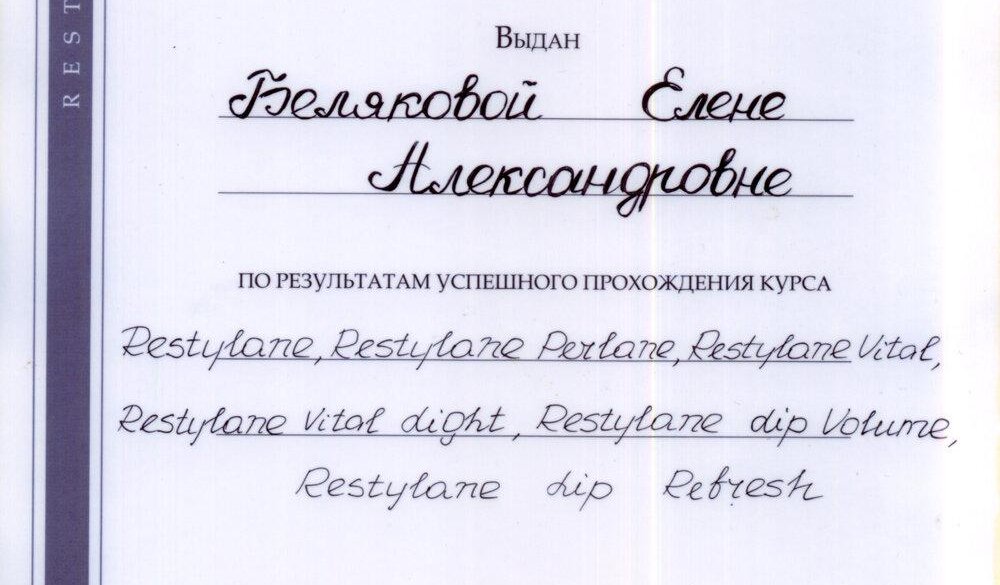 REST
Выдан
Беляковой Елене
Александровне
по результатам успешного прохождения курса
Restylane, Restylane Perlane, Restylane Vital,
Restylane Vital Light, Restylane Lip Volume,
Restylane Lip Refresh